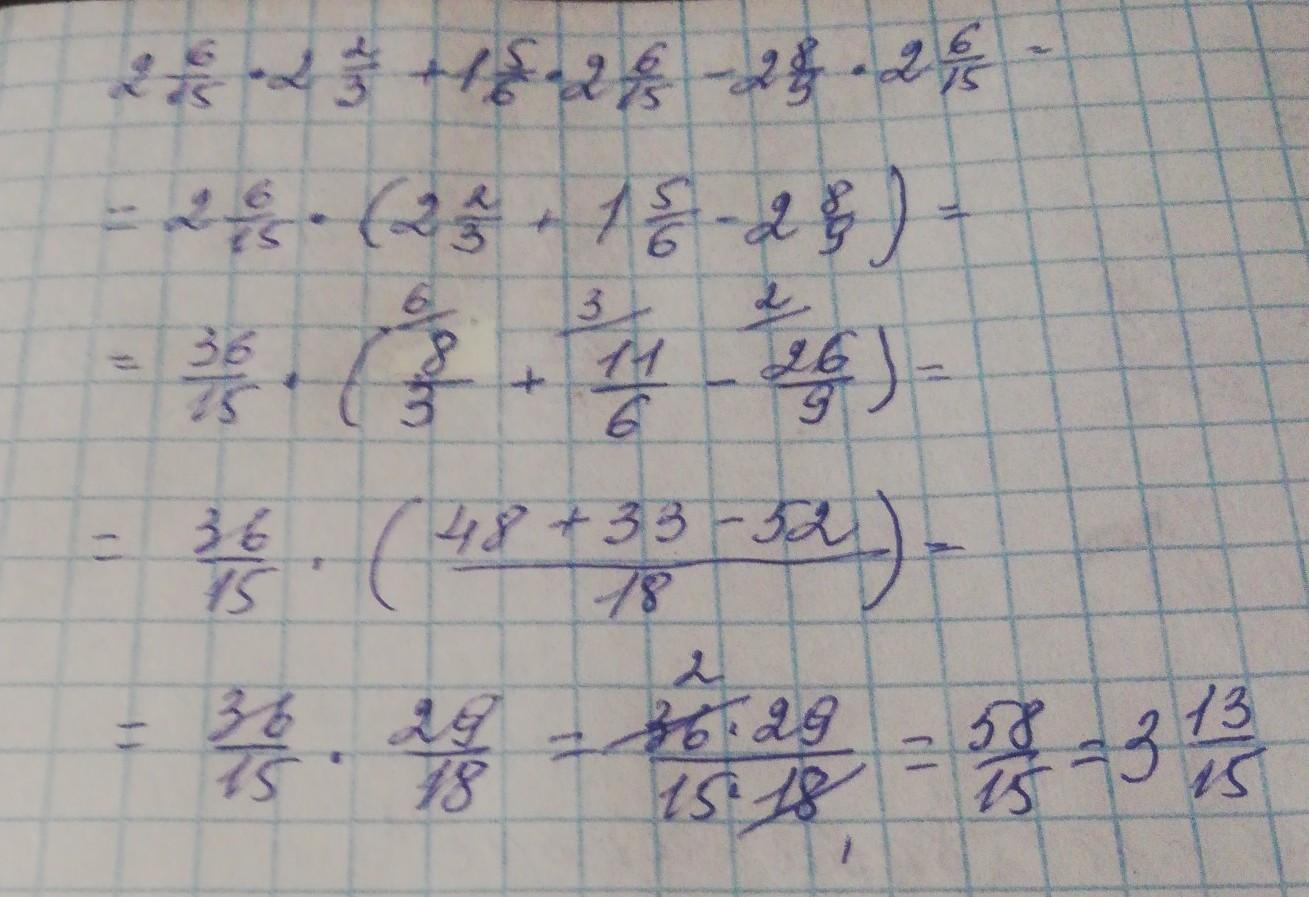 2 6/15 · 2 2/3 + 1 5/6 · 2 6/15 - 2 8/9 · 2 6/15 =
= 2 6/15 · (2 2/3 + 1 5/6 - 2 8/9) =
6/ 3/ 2/
= 36/15 · (8/3 + 11/6 - 26/9) =
= 36/15 · ((48 + 33 - 52)/18) =
2
= 36/15 · 29/18 = (36 · 29)/(15 · 18) = 58/15 = 3 13/15
1